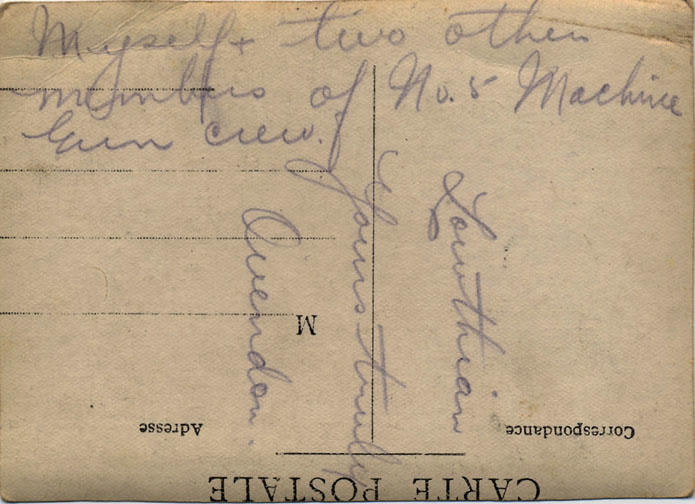 Myself + two other
members of No. 5 Machine
Gun crew.
Lowthian
Yours truly
Owendon.
M
Correspondance
Adresse
CARTE POSTALE